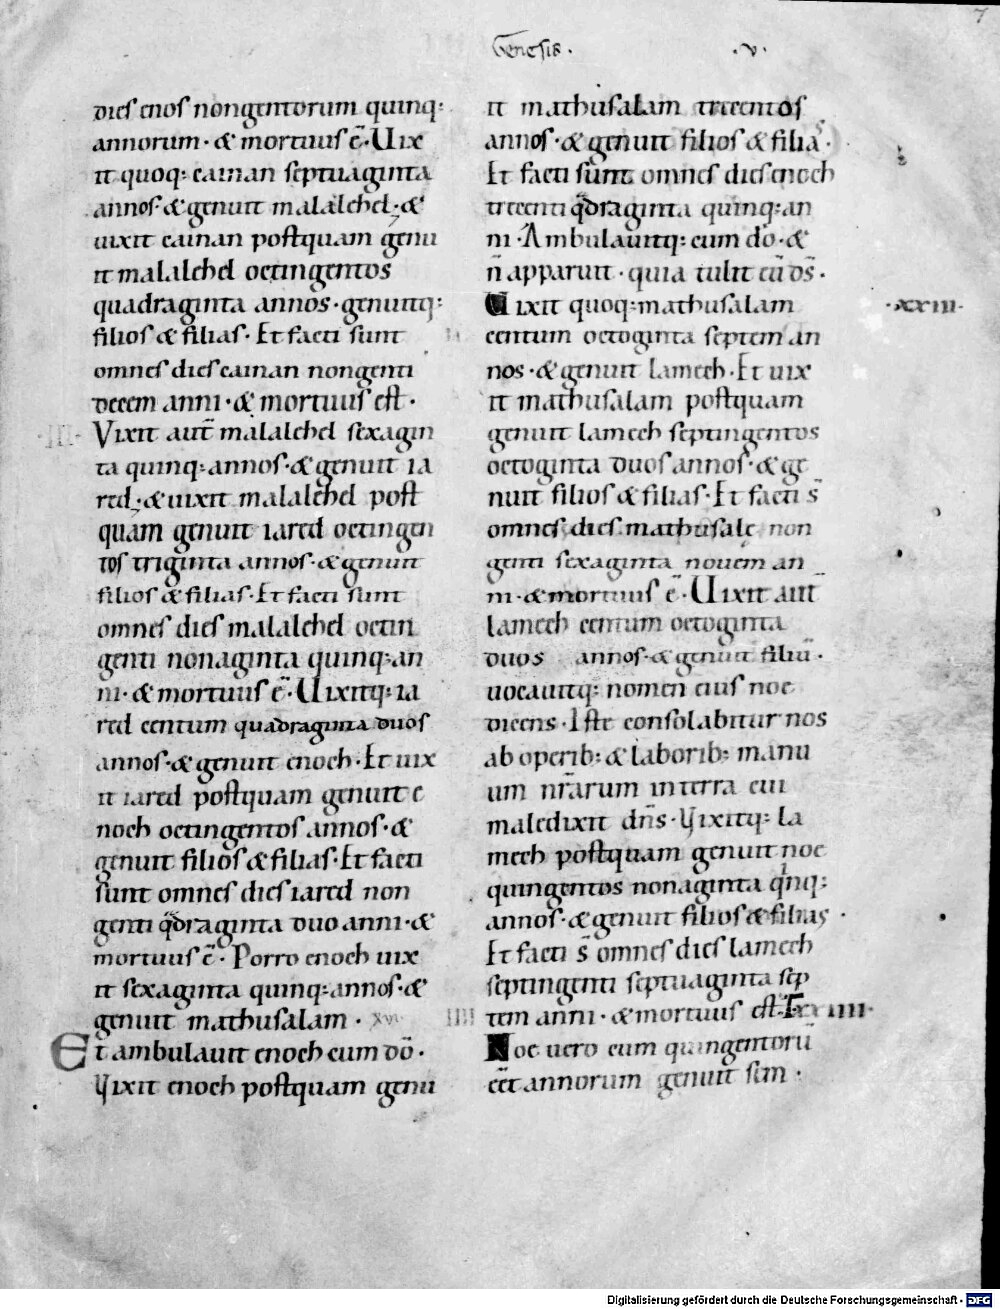 7
Genesis · · v ·
dies enos nongentorum quinq:
annorum · & mortuus ē · Uix
it quoq: cainan septuaginta
annos · & genuit malalehel · &
uixit cainan postquam genu
it malalehel octingentos
quadraginta annos · genuitq:
filios & filias · Et facti sunt
omnes dies cainan nongenti
decem anni · & mortuus est ·
Vixit aut̄ malalehel sexagin
ta quinq: annos · & genuit ia
red · & uixit malalehel post
quam genuit iared octingen
tos triginta annos · & genuit
filios & filias · Et facti sunt
omnes dies malalehel octin
genti nonaginta quinq: an
ni · & mortuus ē · Uixitq: ia
red centum quadraginta duos
annos · & genuit enoch · Et uix
it iared postquam genuit e
noch octingentos annos · &
genuit filios & filias · Et facti
sunt omnes dies iared non
genti qdraginta duo anni · &
mortuus ē · Porro enoch uix
it sexaginta quinq: annos · &
genuit mathusalam · xvi
Et ambulauit enoch cum dō ·
Vixit enoch postquam genu
it mathusalam trecentos
annos · & genuit filios & filia ·
Et facti sunt omnes dies enoch
trecenti qdraginta quinq: an
ni · Ambulauitq: cum dō · &
n̄ apparuit · quia tulit eū d̄s ·
Uixit quoq: mathusalam
· xxiii ·
centum octoginta septem an
nos · & genuit lamech · Et uix
it mathusalam postquam
genuit lamech septingentos
octoginta duos annos · & ge
nuit filios & filias · Et facti s̄
omnes dies mathusale non
genti sexaginta nouem an
ni · & mortuus ē · Uixit aut̄
lamech centum octoginta
duos annos · & genuit filiū ·
uocauitq: nomen eius noe
dicens · Iste consolabitur nos
ab operib: & laborib: manu
um nr̄arum in terra cui
maledixit dn̄s · Vixitq: la
mech postquam genuit noe
quingentos nonaginta qnq:
annos · & genuit filios & filias ·
Et facti s̄ omnes dies lamech
septingenti septuaginta sep
tem anni · & mortuus est ·
Noe uero cum quingentorū
eēt annorum genuit sem ·
Digitalisierung gefördert durch die Deutsche Forschungsgemeinschaft - DFG